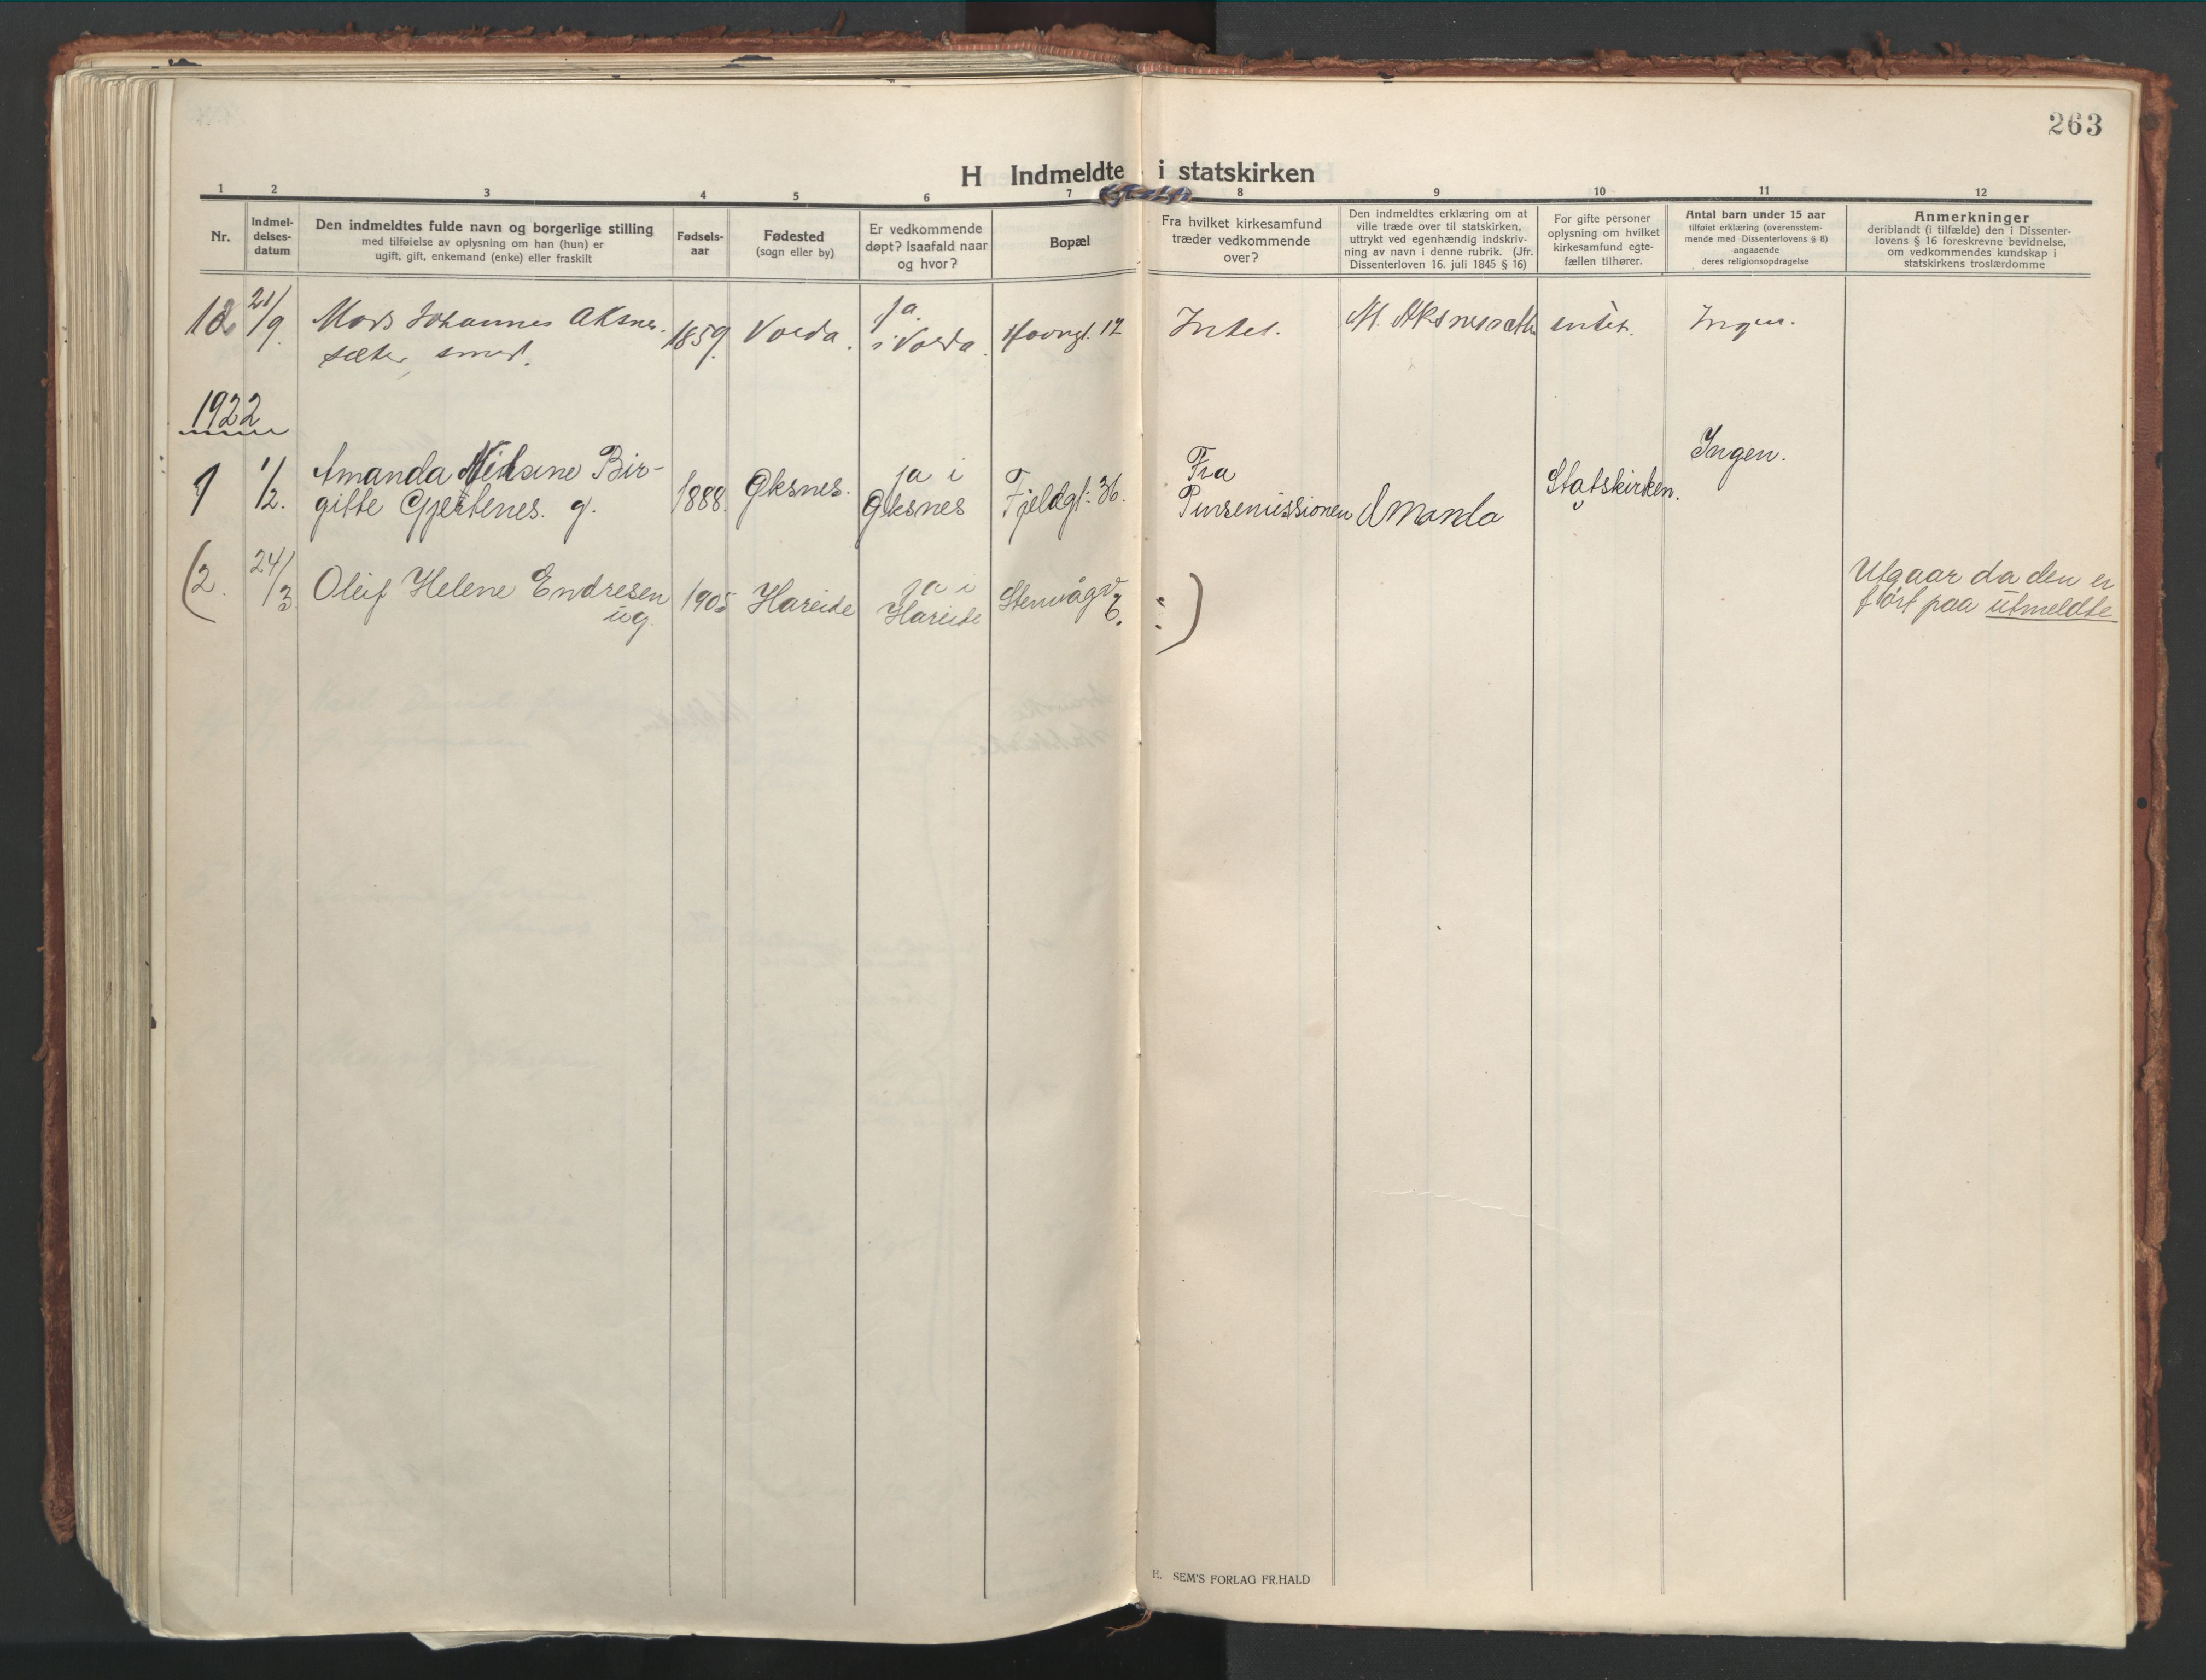 263
H Indmeldte i statskirken
1 2 3 4 5 6 7 8 9 10 11 12
Nr.
Indmel-
delses-
datum
Den indmeldtes fulde navn og borgerlige stilling
med tilføielse av oplysning om han (hun) er
ugift, gift, enkemand (enke) eller fraskilt
Fødsels-
aar
Fødested
(sogn eller by)
Er vedkommende
døpt? Isaafald naar
og hvor?
Bopæl
Fra hvilket kirkesamfund
træder vedkommende
over?
Den indmeldtes erklæring om at
ville træde over til statskirken,
uttrykt ved egenhændig indskriv-
ning av navn i denne rubrik. (Jfr.
Dissenterloven 16. juli 1845 § 16)
For gifte personer
oplysning om hvilket
kirkesamfund egte-
fællen tilhører.
Antal barn under 15 aar
tilføiet erklæring (overensstem-
mende med Dissenterlovens § 8)
angaaende
deres religionsopdragelse
Anmerkninger
deriblandt (i tilfælde) den i Dissenter-
lovens § 16 foreskrevne bevidnelse,
om vedkommendes kundskap i
statskirkens troslærdomme
21/9.
Mads Johannes Aksnes-
sæter, smed.
1859.
Volda.
Ja.
i Volda.
Havngt. 12
Intet.
M. Aksnesæth
intet.
Ingen.
1922
1
1/2.
Amanda Bir-
gitte Gjertenes. g.
1888.
Øksnes.
ja i
Øksnes
Fjeldgt: 36.
Fra
Pinsemissionen
Amanda
Statskirken.
Ingen.
(2.
24/3
Oleif Helene Endresen
ug.
1905
Hareide
ja i
Hareide
Stenvågv
6.
)
Utgaar da den er
ført paa utmeldte
E. SEM'S FORLAG FR.HALD